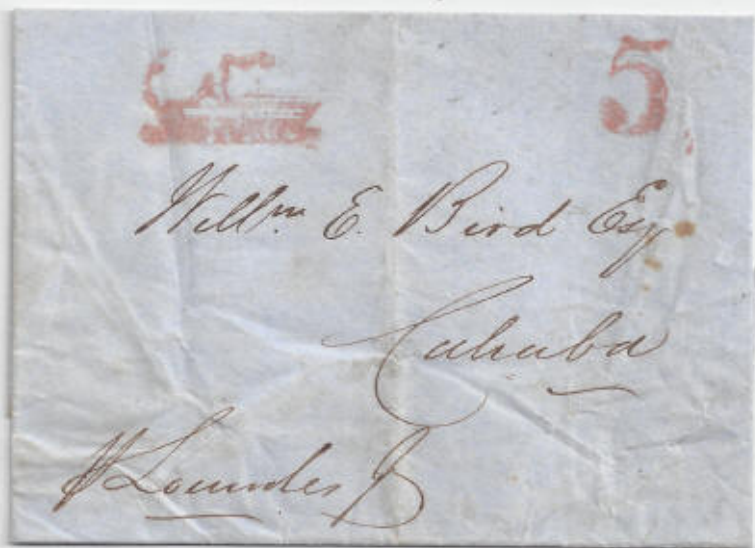 5
Willm E. Bird Esq
Cahaba
Lowndes